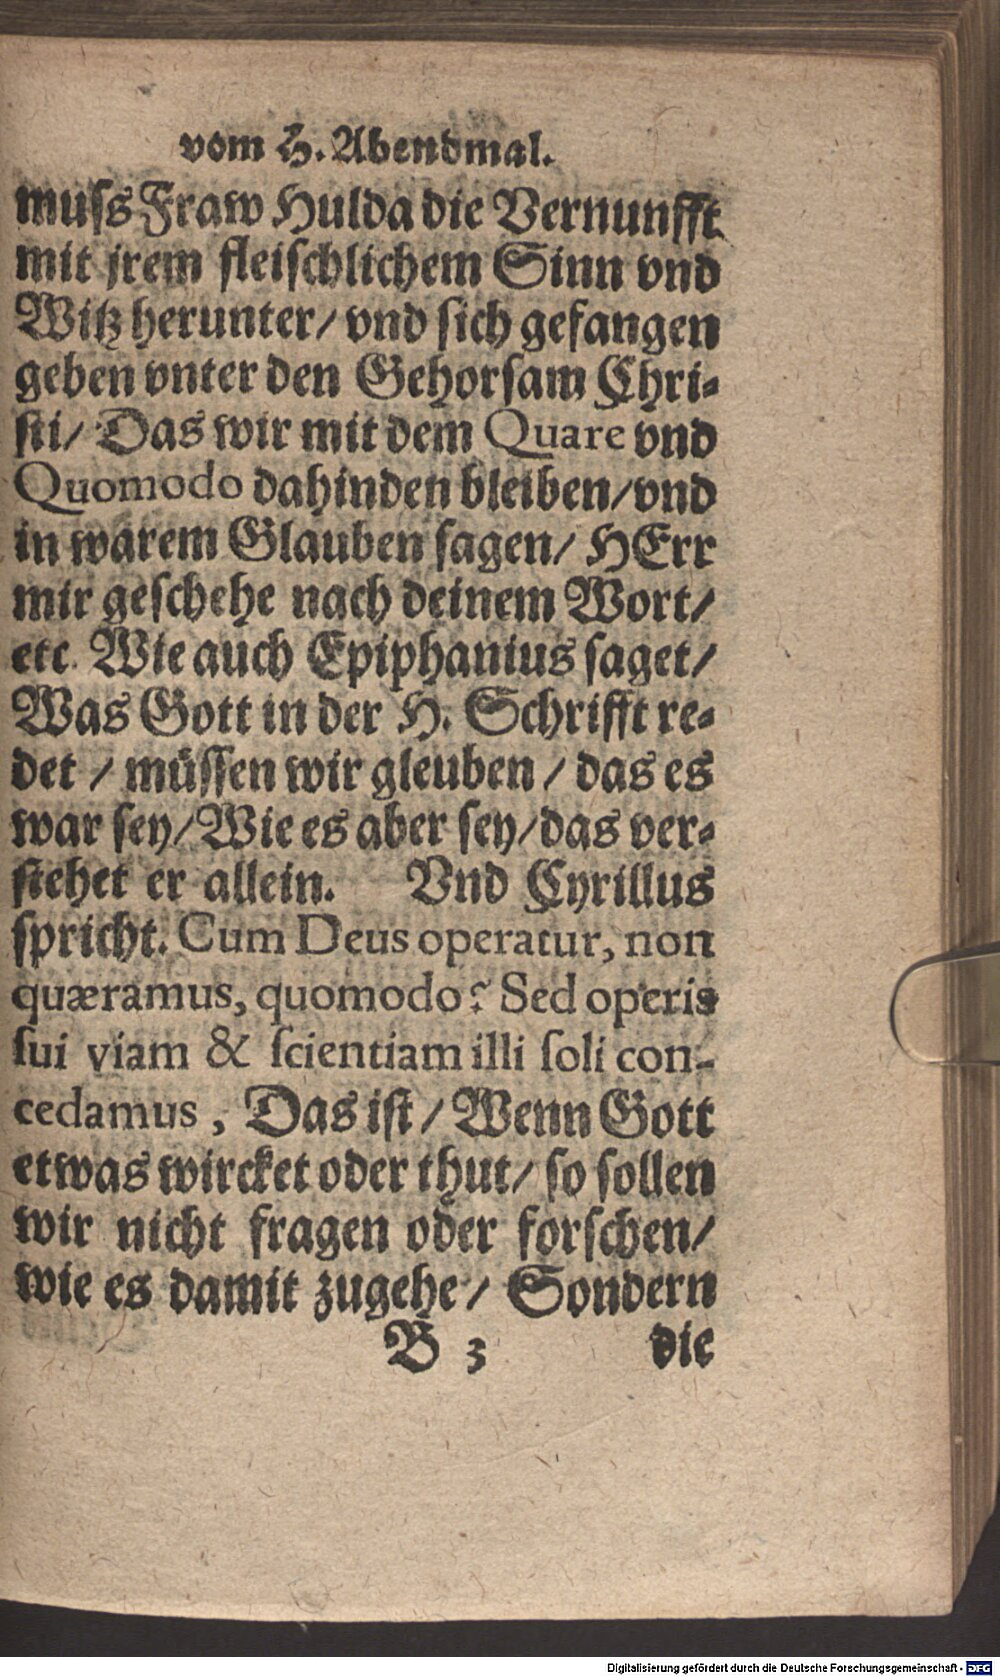 vom H. Abendmal.
muſs Fraw Hulda die Vernunfft
mit jrem fleiſchlichem Sinn vnd
Witz herunter/ vnd ſich gefangen
geben vnter den Gehorſam Chri-
ſti/ Das wir mit dem Quare vnd
Quomodo dahinden bleiben/ vnd
in warem Glauben ſagen/ HErr
mir geſchehe nach deinem Wort/
etc. Wie auch Epiphanius ſaget/
Was Gott in der H. Schrifft re-
det / müſſen wir gleuben / das es
war ſey/ Wie es aber ſey/ das ver-
ſtehet er allein. Vnd Cyrillus
ſpricht. Cum Deus operatur, non
quæramus, quomodo? Sed operis
ſui viam & ſcientiam illi ſoli con-
cedamus, Das iſt / Wenn Gott
etwas wircket oder thut/ ſo ſollen
wir nicht fragen oder forſchen/
wie es damit zugehe / Sondern
B 3 die
Digitalisierung gefördert durch die Deutsche Forschungsgemeinschaft - DFG